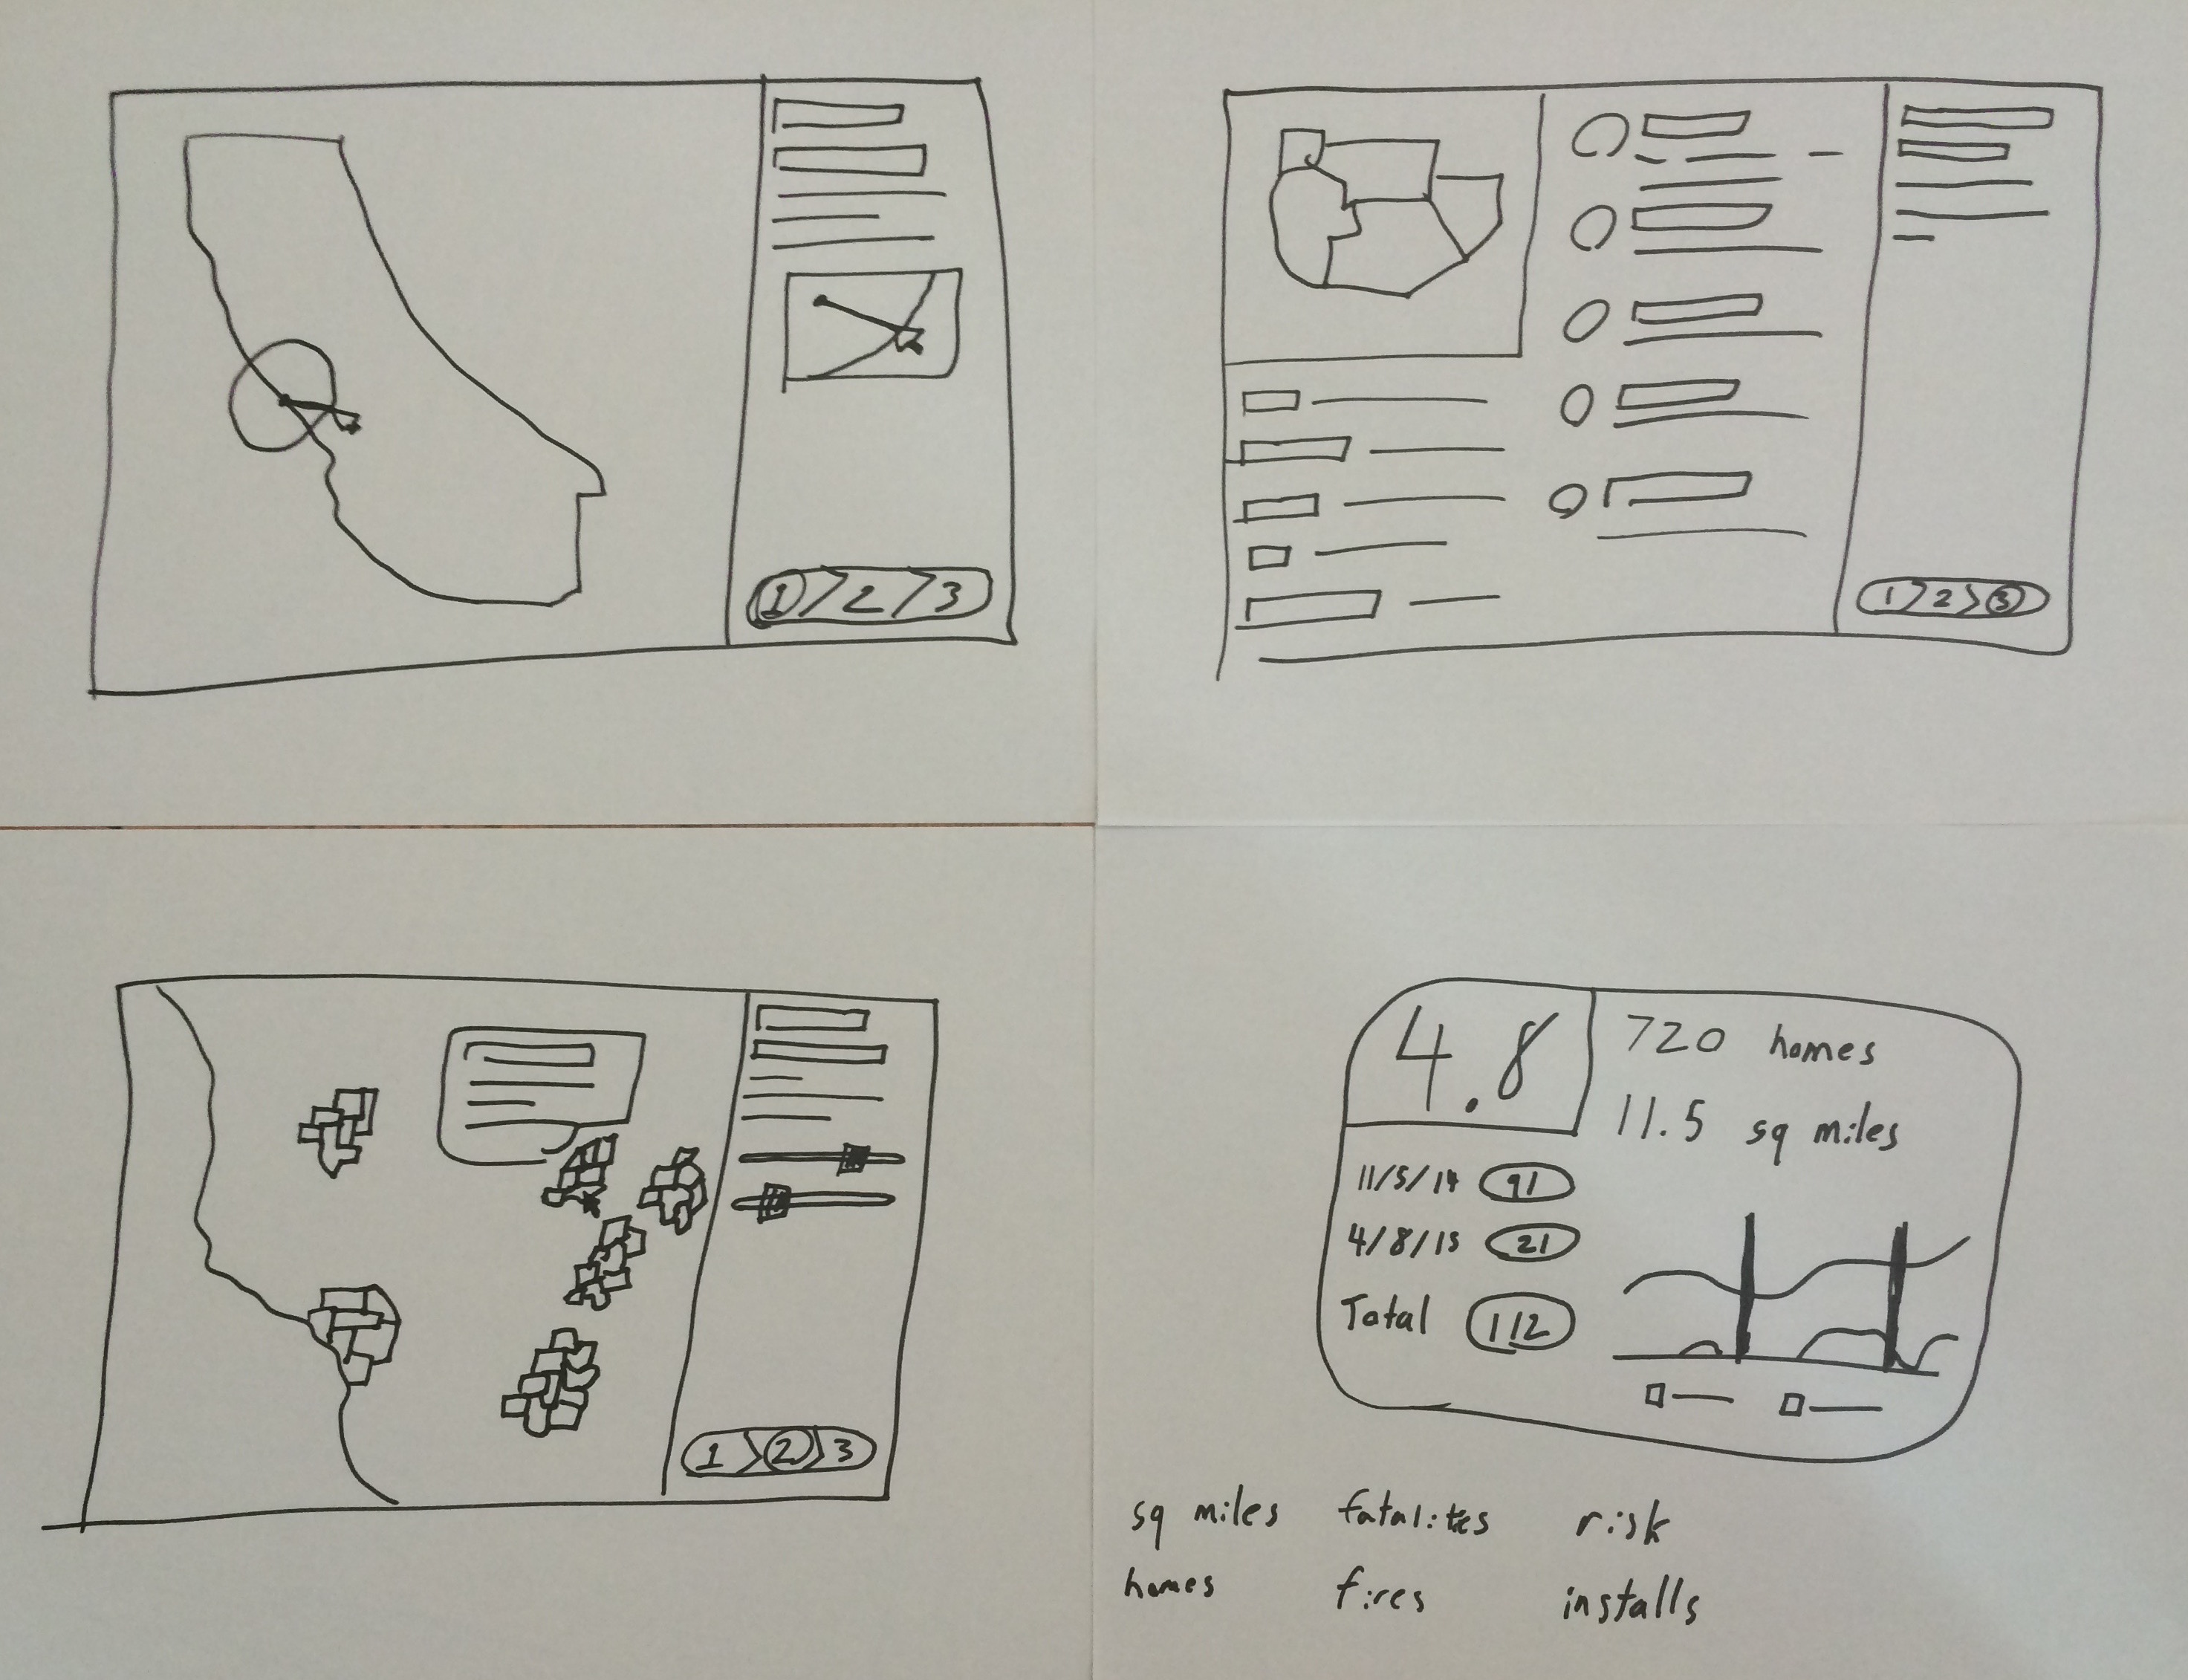 1 2 3
1 2 3
1 2 3
4.8
720 homes
11.5 sq miles
11/5/14 91
4/8/15 21
Total 112
sq miles fatalites risk
homes fires installs